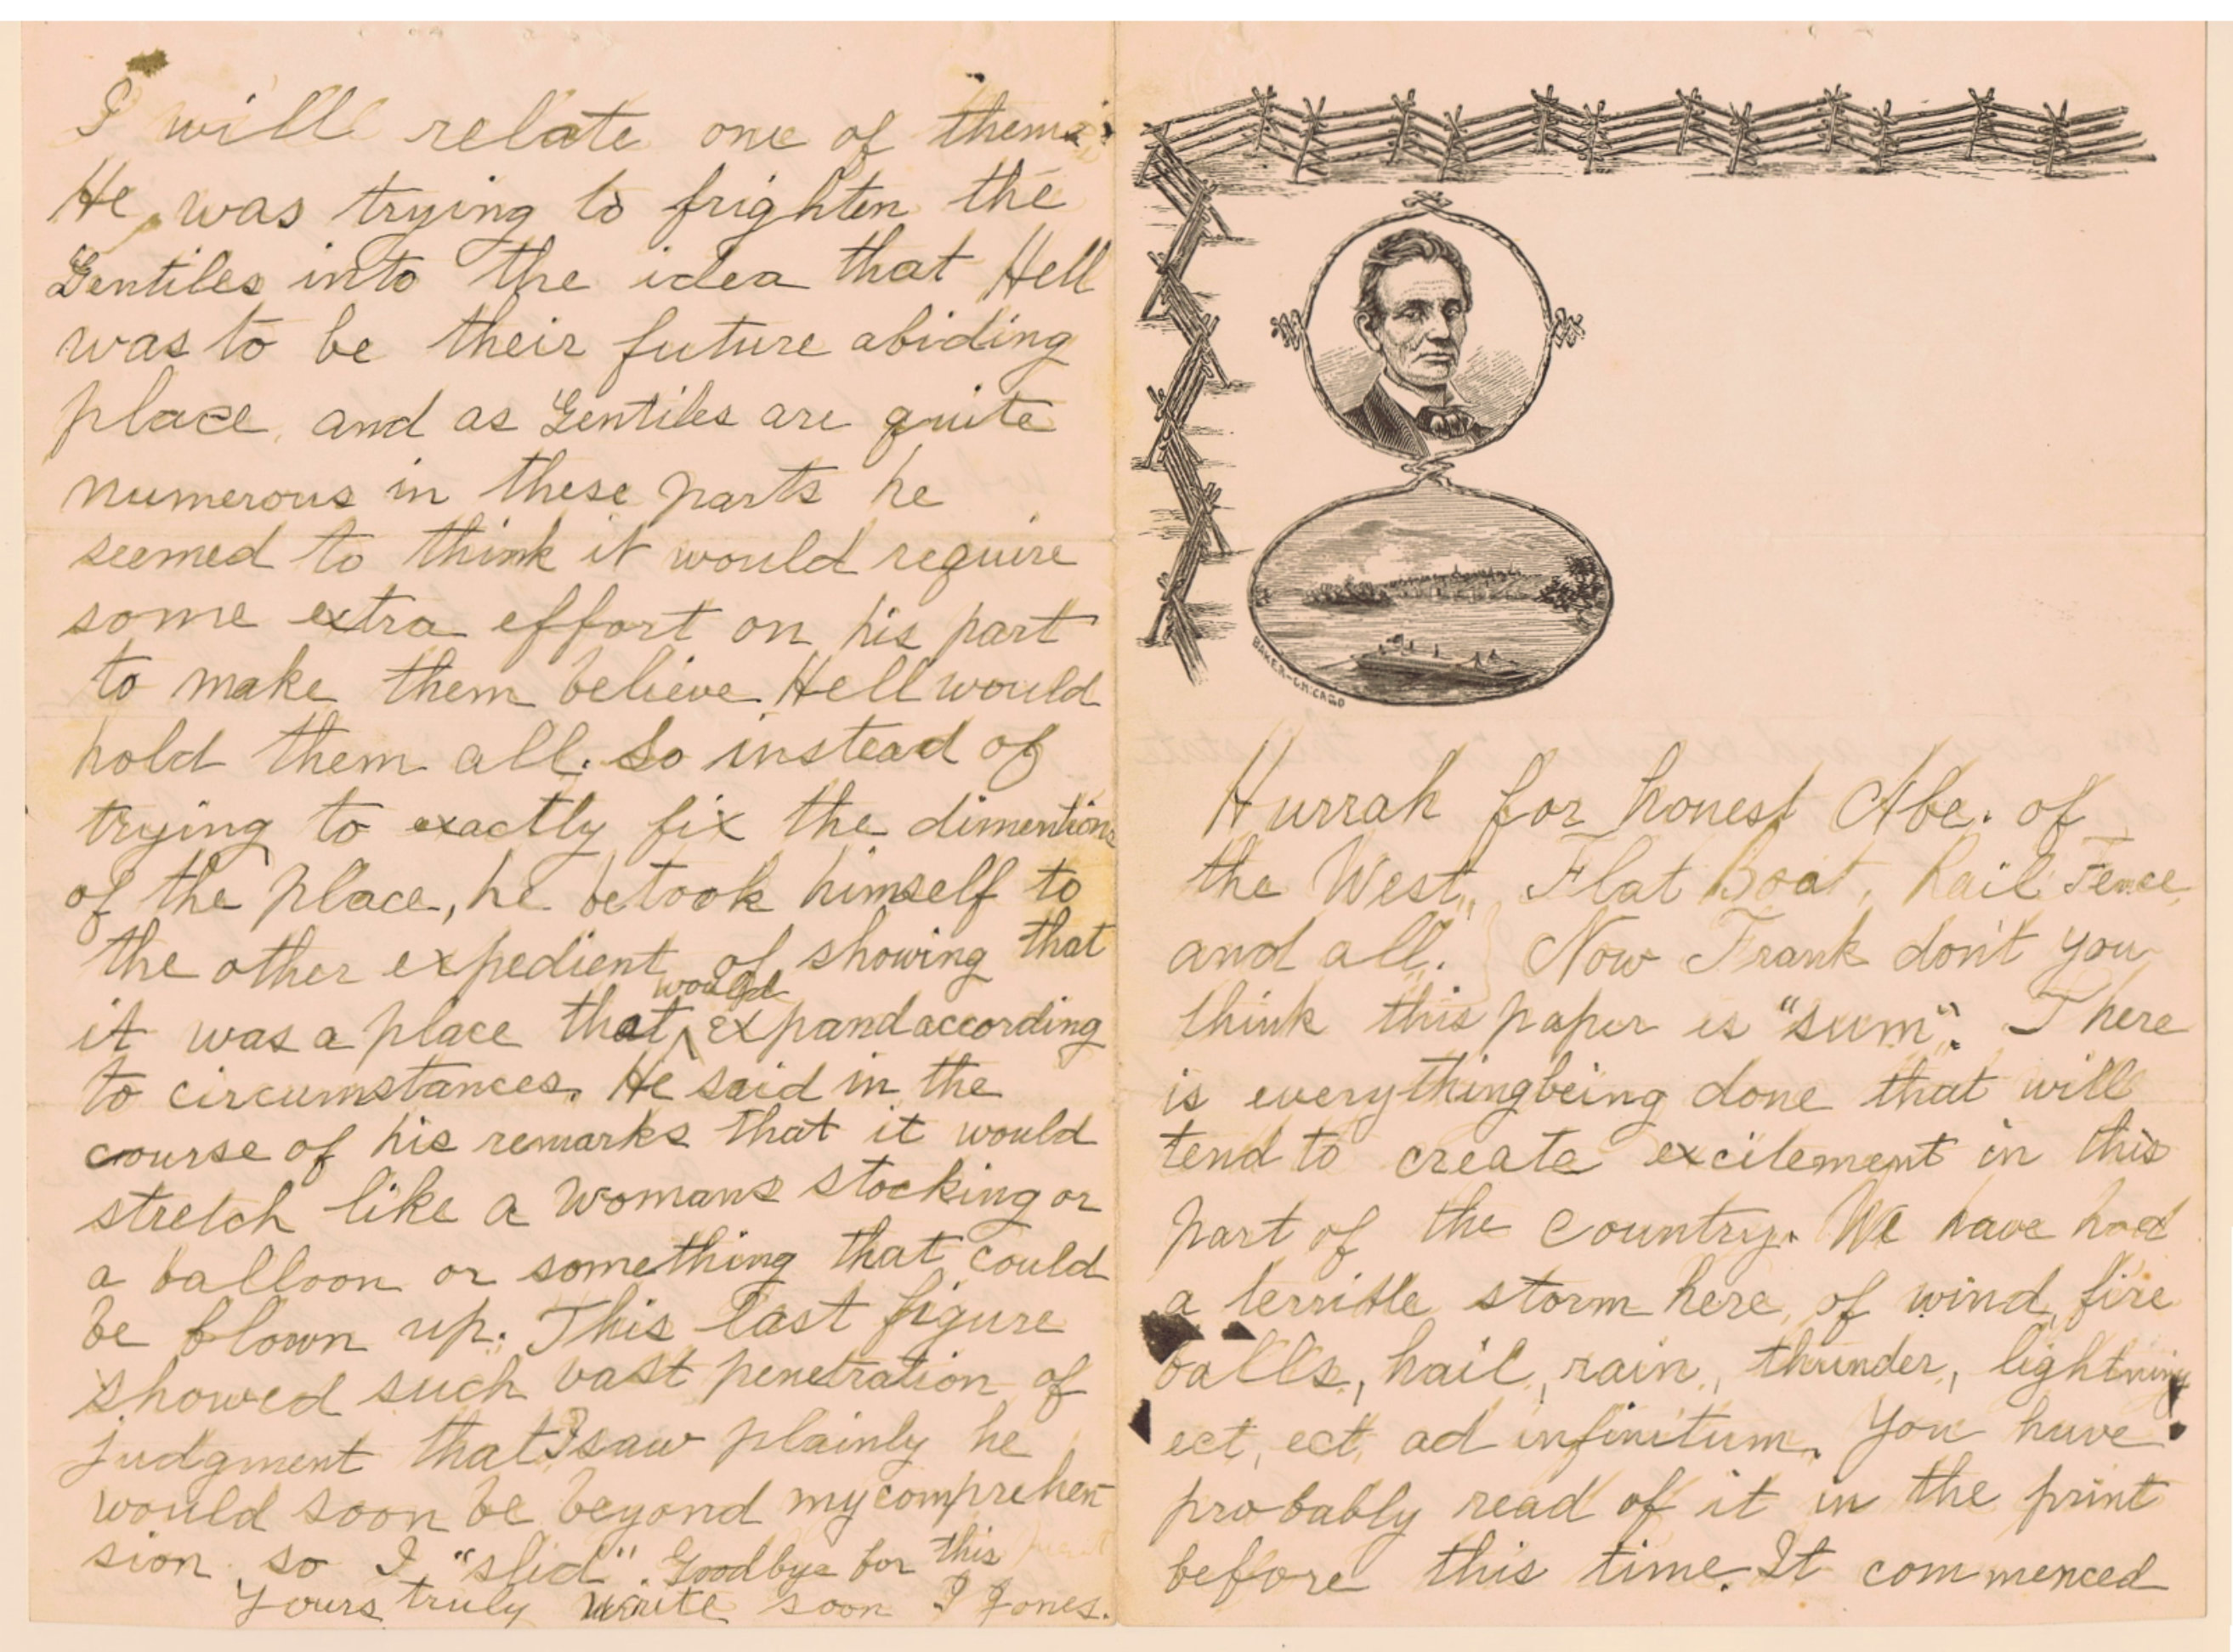 I will relate one of them:
He was trying to frighten the
Gentiles into the idea that Hell
was to be their future abiding
place, and as Gentiles are quite
numerous in these parts he
seemed to think it would require
some extra effort on his part
to make them believe Hell would
hold them all. So instead of
trying to exactly fix the dimentions
of the place, he betook himself to
the other expedient of showing that
would
it was a place that ^ expand according
to circumstances. He said in the
course of his remarks that it would
stretch like a womans stocking or
a balloon or something that could
be blown up. This last figure
showed such vast penetration of
judgment that I saw plainly he
would soon be beyond my comprehen
sion, so I "slid". Goodbye for this
Yours truly write soon I Jones.
BAKER-CHICAGO
Hurrah for honest Abe. of
the West, Flat Boat, Rail Fence,
and all. } Now Frank don't you
think this paper is "sum". There
is everything being done that will
tend to create excitement in this
part of the country. We have had
a terrible storm here, of wind, fire
balls, hail, rain, thunder, lightning
ect, ect, ad infinitum. You have
probably read of it in the print
before this time. It commenced